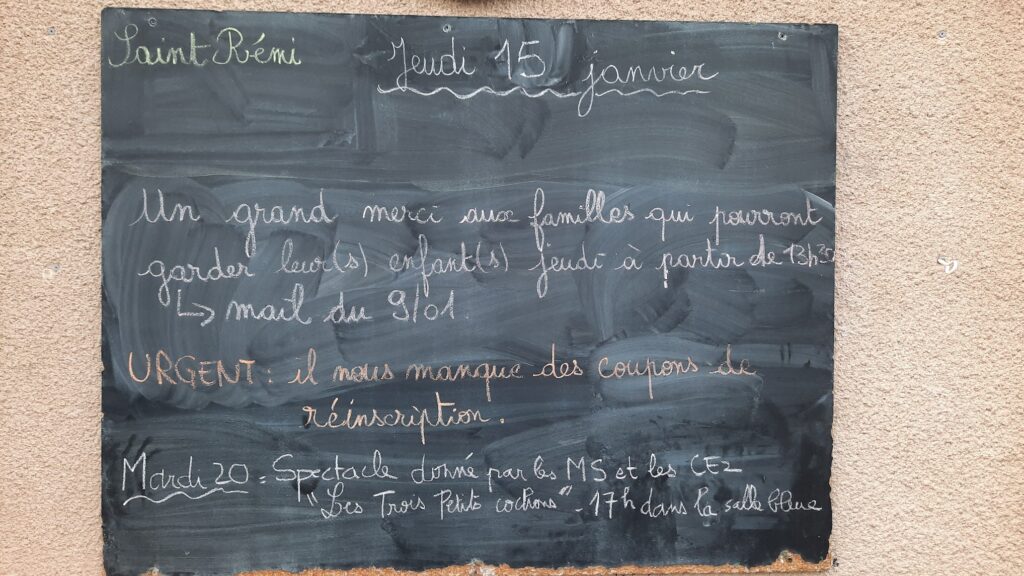 Saint Rémi
Jeudi 15 janvier
Un grand merci aux familles qui pourront
garder leur(s) enfant(s) jeudi à partir de 13h30
↳ mail du 9/01.
URGENT : il nous manque des coupons de
réinscription.
Mardi 20 : Spectacle donné par les MS et les CE2
"Les Trois Petits cochons" - 17h dans la salle bleue